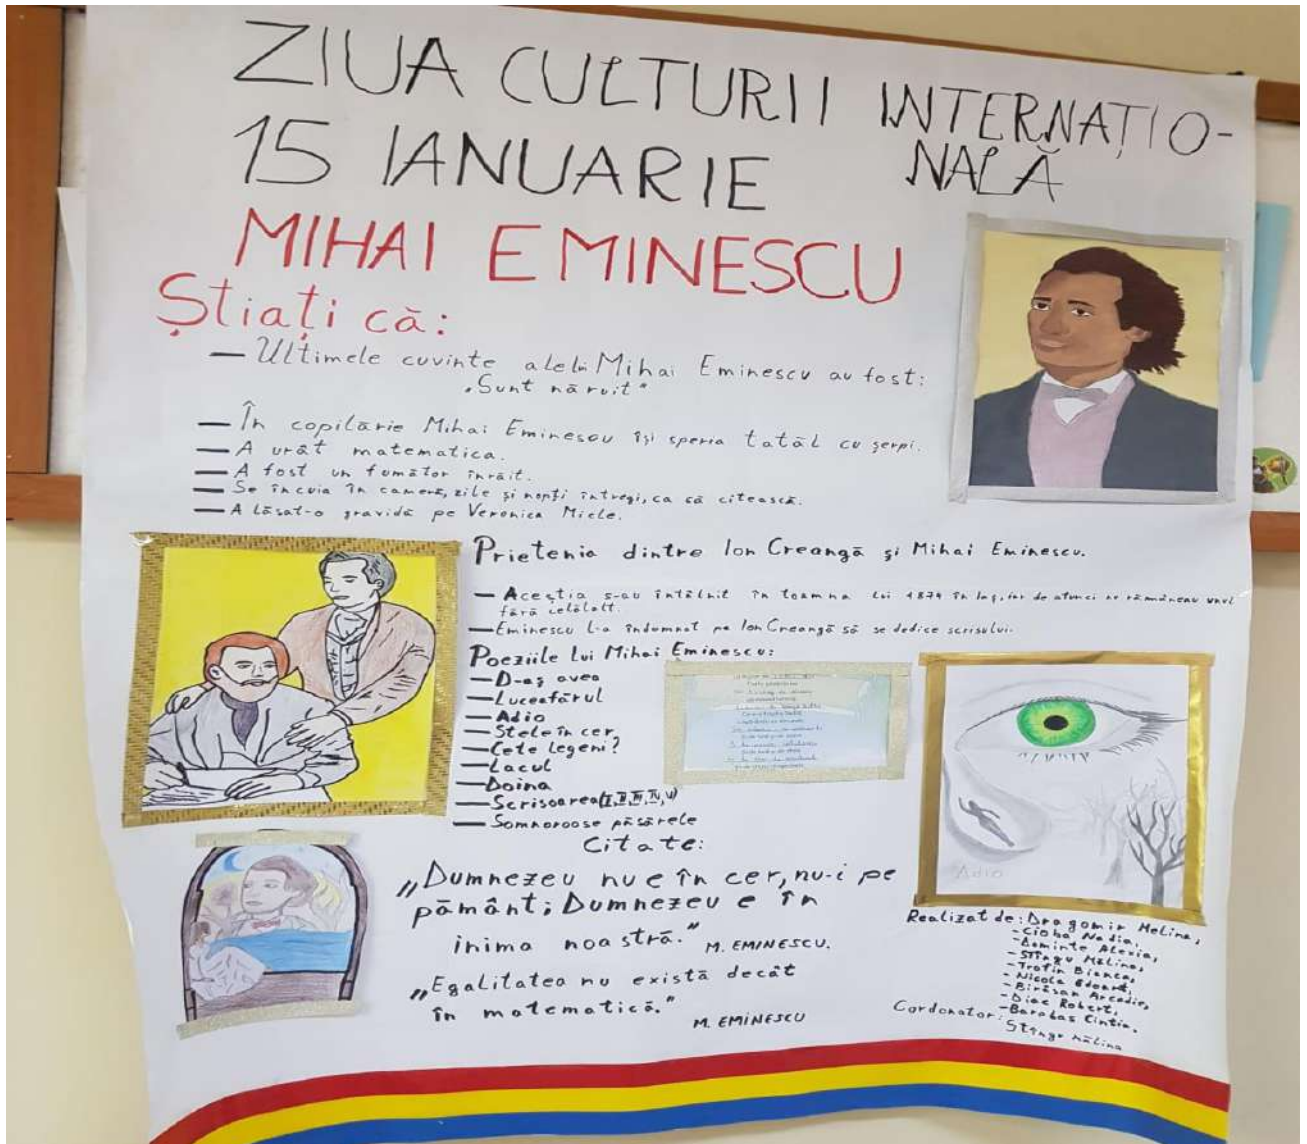 ZIUA CULTURII INTERNAȚIO-
NALĂ
15 IANUARIE
MIHAI EMINESCU
Știați că:
— Ultimele cuvinte alelui Mihai Eminescu au fost:
„Sunt năruit"
— În copilărie Mihai Eminescu își speria tatăl cu șerpi.
— A urât matematica.
— A fost un fumător înrăit.
— Se încuia în cameră, zile și nopți întregi, ca să citească.
— A lăsat-o gravidă pe Veronica Micle.
Prietenia dintre Ion Creangă și Mihai Eminescu.
— Aceștia s-au întâlnit în toamna lui 1874 în Iași, iar de atunci nu rămâneau unul
fără celălalt.
— Eminescu l-a îndemnat pe Ion Creangă să se dedice scrisului.
Poeziile lui Mihai Eminescu:
— D-aș avea
— Luceafărul
— Adio
— Stele în cer,
— Cete legeni?
— Lacul
— Doina
— Scrisoarea (I, II, III, IV, V)
— Somnoroose păsărele
Citate:
„Dumnezeu nu e în cer, nu-i pe
pământ; Dumnezeu e în
inima noastră."
M. EMINESCU.
„Egalitatea nu există decât
în matematică."
M. EMINESCU
Adio
Realizat de: Dragomir Melina,
- Cioba Nadia,
- Dominte Alexia,
- Stîngu Mălina,
- Trofin Bianca,
- Nicola Eduart,
- Bîrăsan Arcadie,
- Diac Robert,
- Barabas Cintia.
Cordonator:
Stîngu Mălina